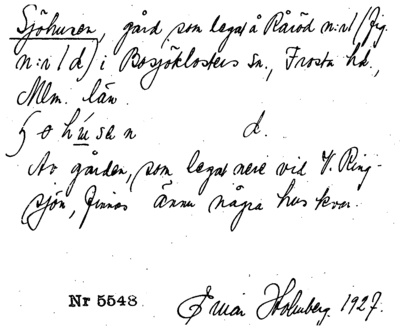 Sjöhusen, gård, som legat å Råröd n:r 1 (fig.
n:r 1 d) i Bosjöklosters sn., Frosta hd.,
Mlm. län.
høhúsan d.
Av gården, som legat nere vid V. Ring-
sjön, finnas ännu några hus kvar.
Nr 5548 Einar Holmberg 1927.